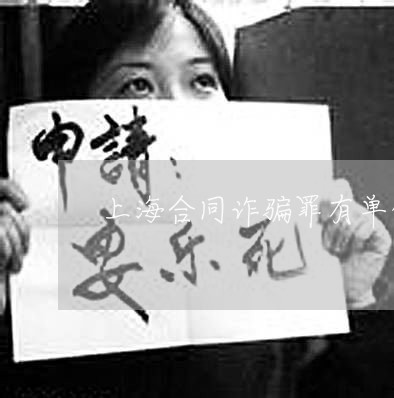 申請：
上海合同诈骗罪有单
安乐死